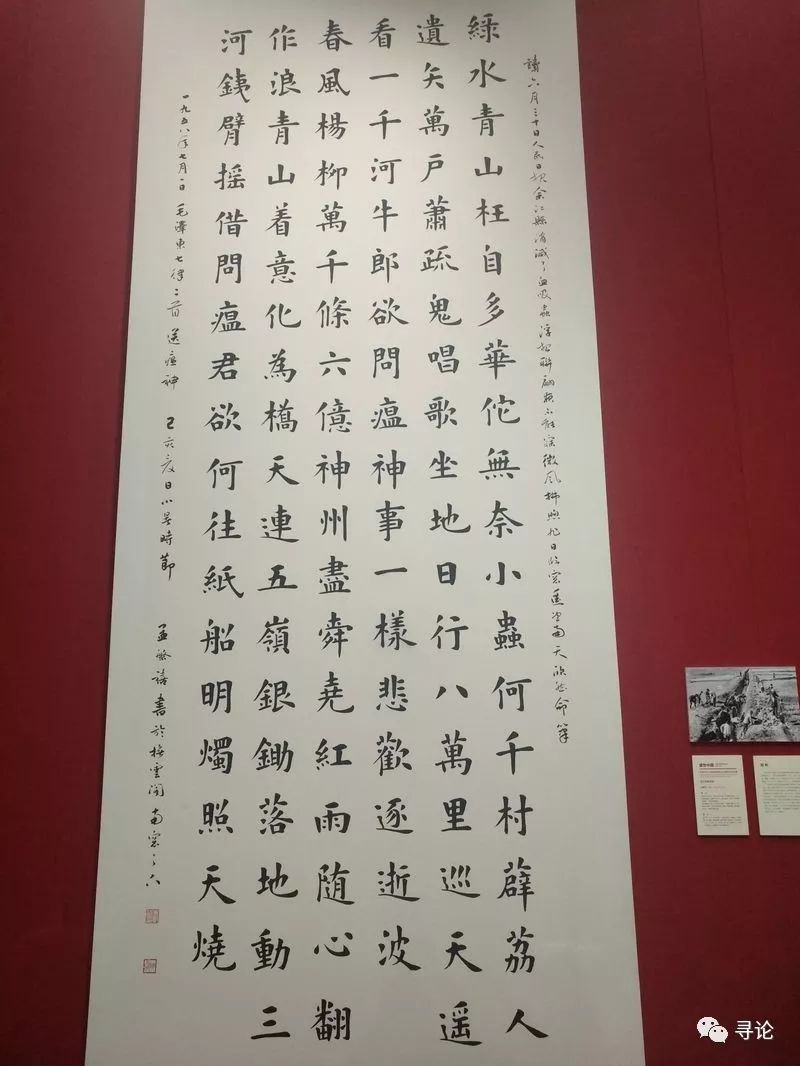 讀六月三十日人民日報余江縣消滅了血吸蟲浮想聯翩夜不能寐微風拂煦旭日臨窗遙望南天欣然命筆
綠水青山枉自多華佗無奈小蟲何千村薜荔人
遺矢萬戶蕭疏鬼唱歌坐地日行八萬里巡天遙
看一千河牛郎欲問瘟神事一樣悲歡逐逝波
春風楊柳萬千條六億神州盡舜堯紅雨随心翻
作浪青山着意化為橋天連五嶺銀鋤落地動三
河銕臂摇借問瘟君欲何往紙船明燭照天燒
一九五八年七月一日 毛澤東七律二首 送瘟神 己亥夏日小暑時節 孟繁禧書於雲閣南窗
寻论